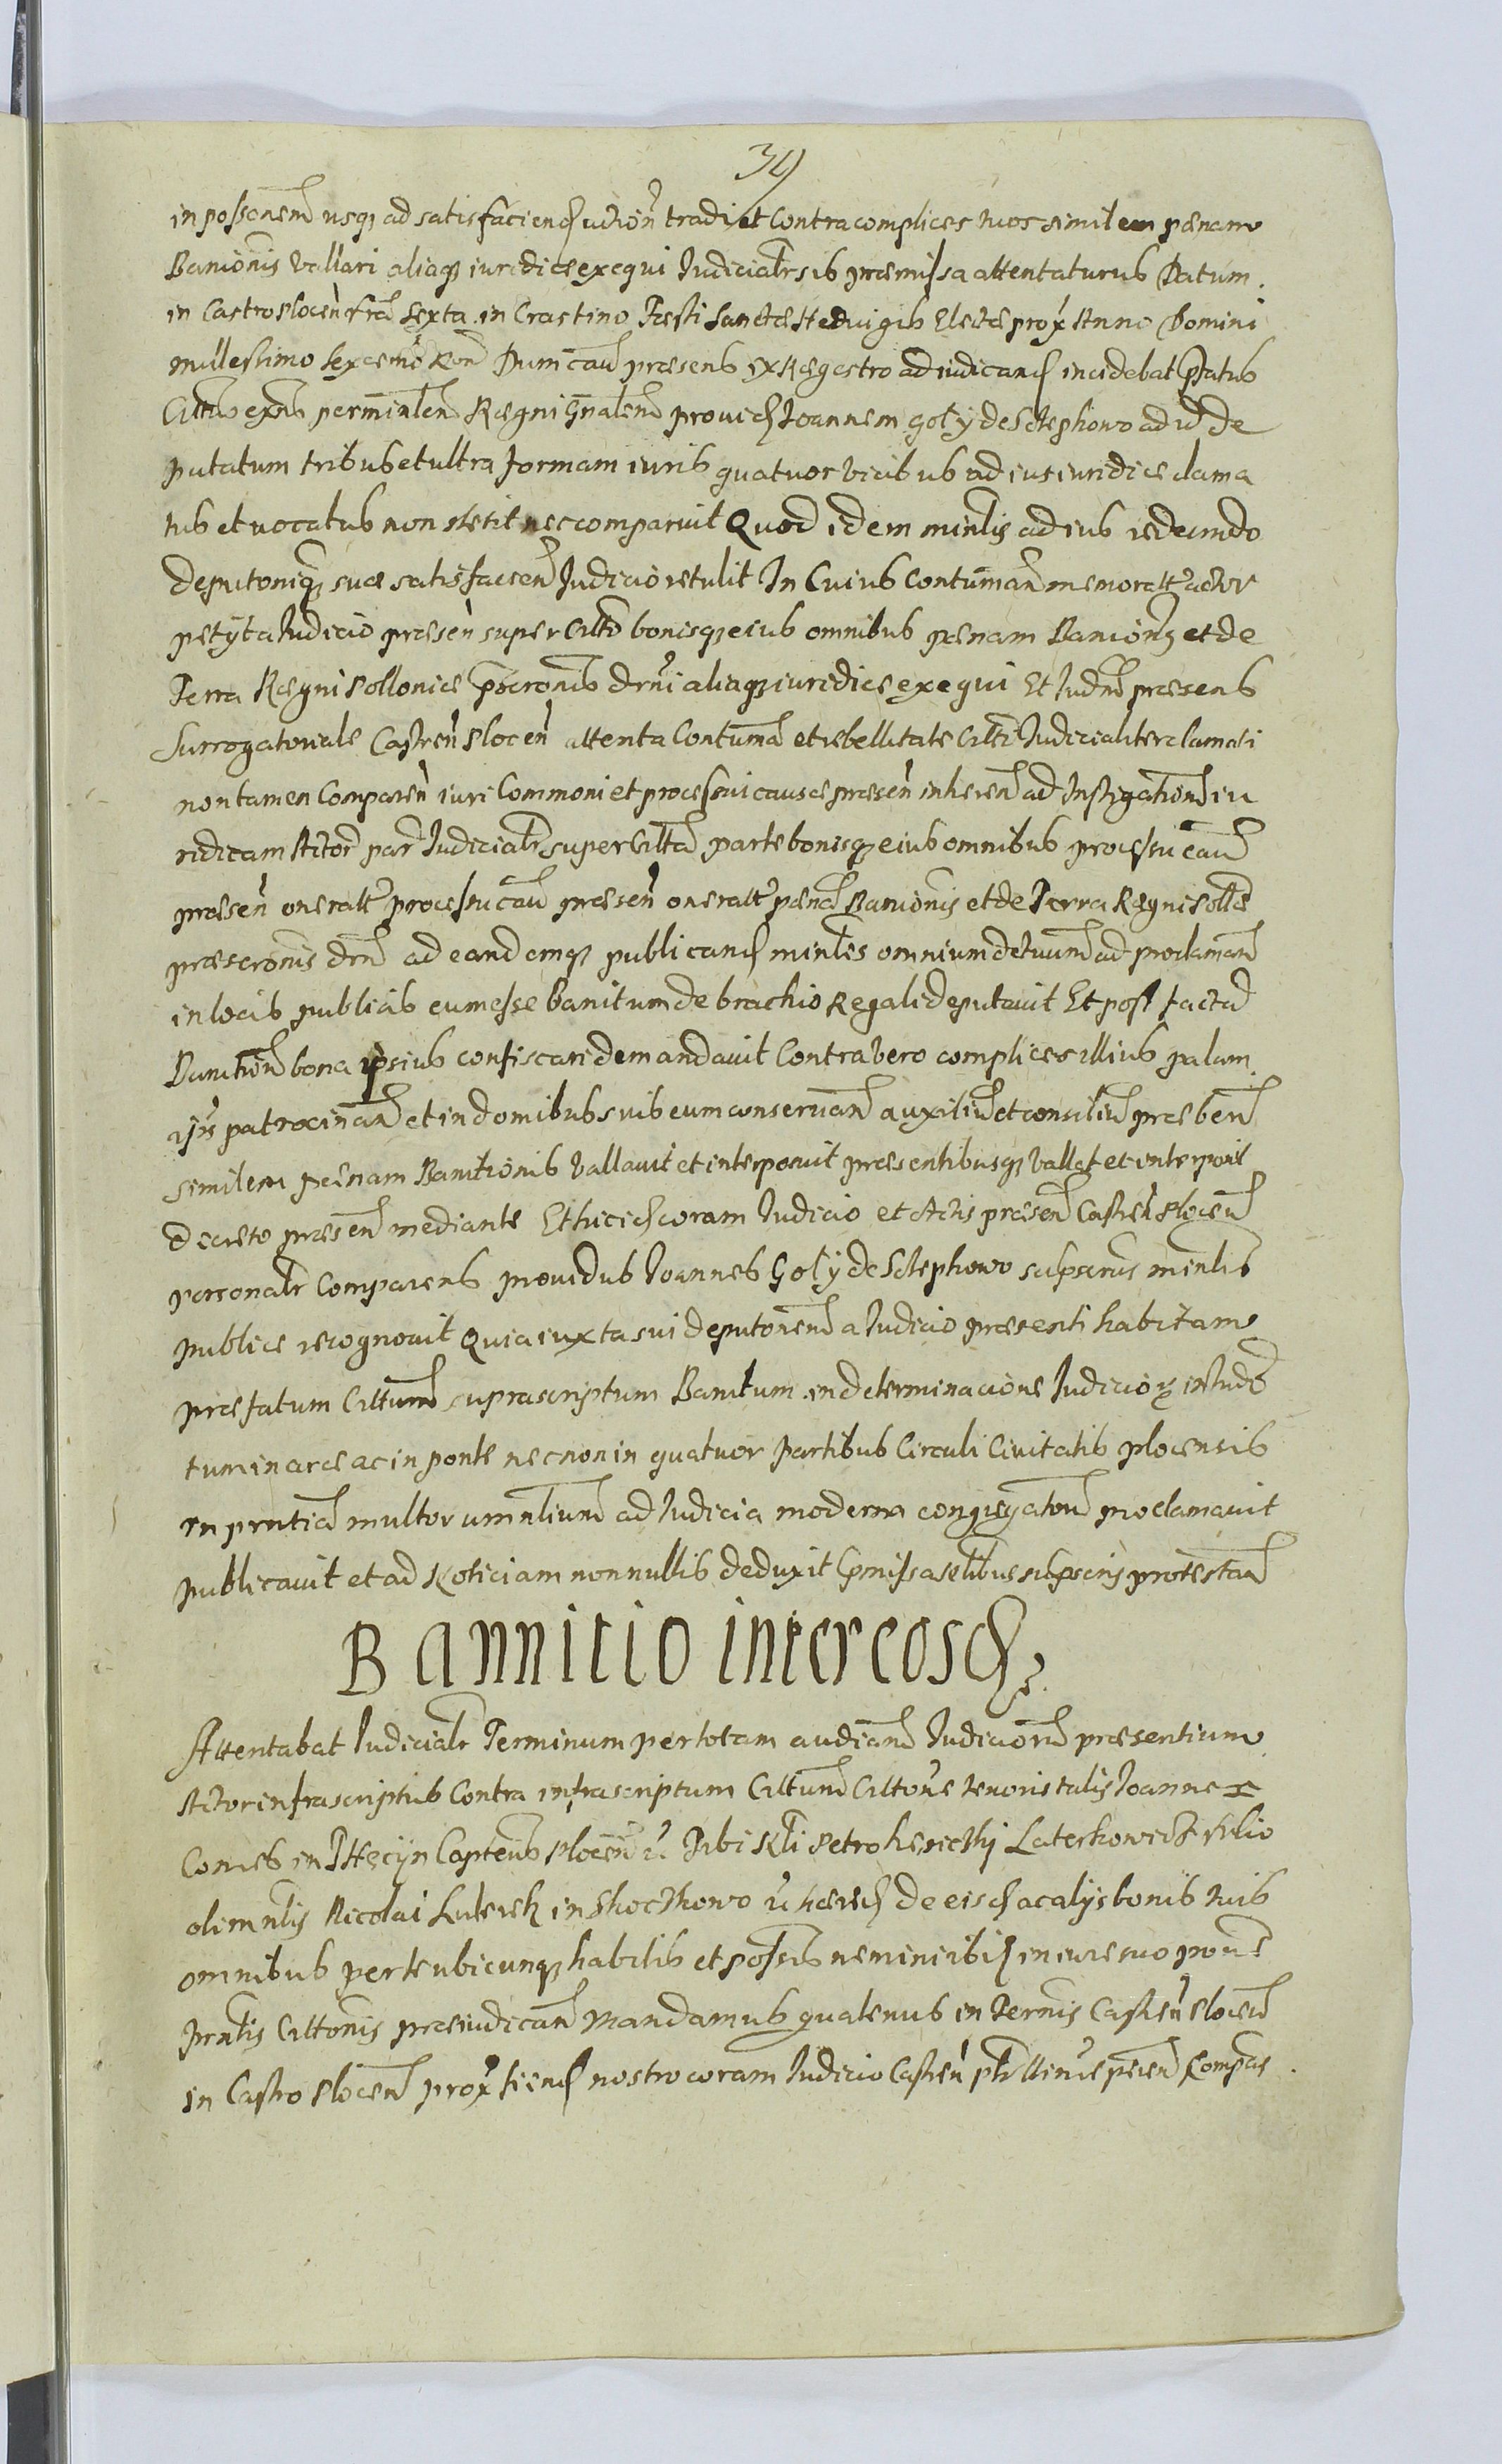 34
in possonem usq ad satisfaciend action tradi et Contra complices tuos similem pænam
Banionis vallari aliaq iuridice exequi Iudicialr sib præmissa attentaturus Datum
in Castro Plocen fria sexta in Crastino Festi Sanctæ Heduigis Electæ prox Anno Domini
millessimo sexcemo Dum cau præsens ex Rægestro ad iudicand incidebat Pfatus
Citatus exns perminlem Rægni Gnalem provid Ioannem goły de Sclephowo ad id de
putatum tribus et ultra formam iuris quatuor vicibus ad ius iuridice clama
tus et vocatus non stetit nec comparuit Quod idem minlis ad ius redeundo
deputoniq suæ satisfacien Iudicio retulit In Cuius Contuman memoratt actor
petijt a Iudicio præsen super Citto bonisq eius omnibus pænam Banionis et de
Terra Rægni Pollonicæ pscronis drni aliaq iuridice exequi Et Iudm præsens
Surrogatoriale Castren Plocen attenta Contuma et rebellitate Citti Iudicialiter clamati
non tamen Comparen iuri Commoni et processui causæ præsen inheren ad Instigationem iu
ridicam Actor par Iudicialr super Citta parte bonisq eius omnibus processu cau
præsen oneratt processu cau præsen oneratt pæna Banionis et de Terra Regni Polle
præscronis drn ad eandemq publicand minles omnium detuum ad proclaman
in locis publicis eum esse Banitum de brachio Regali deputavit Et post facta
Banition bona ipsius confiscari demandavit Contra vero complices illius palam
ijs patrocinan et in domibus suis eum conservan auxilium et consilium præben
similem pænam Banitionis vallavit et interposuit præsentibusq vallat et interponit
decreto præsen mediante Et hic id coram Iudicio et Actis præsen Castren Plocen
personalr Comparens providus Ioannes Goły de Sclephowo subscrus minlis
publice recognovit Quia iuxta sui deputonem a Iudicio præsenti habitam
præfatum Cittum suprascriptum Banitum in determinacione Iudicior
tum in arce ac in ponte nec non in quatuor Partibus Circuli Civitatis plocensis
in prntia multorum nlium ad Iudicia moderna congregatorum proclamavit
publicavit et ad Noticiam nonnullis deduxit protestan
Bannitio inter eosd
Attentabat Iudicialr Terminum per totam audian Iudiciorum præsentium
Actor infrascriptus Contra infrascriptum Cittum Cittone tenoris talis Ioannes
Comes in Thęcijn Capteus Plocen Tibi Nli Petro Lateskowicz filio
olim nlis Nicolai in de eisd ac alijs bonis tuis
omnibus per te ubicunq habitis et possis nemini ibid in iure suo
prntis Cittonis præiudican Mandamus quatenus in termis Castren Plocen
in Castro Plocen prox fiend nostro coram Iudicio Castren Compas